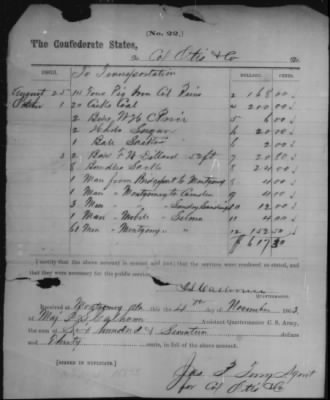 [No. 22.]
The Confederate States,
To Col Otis & Co Dr.
DOLLARS. CENTS.
To Transportation
August 25 Tons Pig Iron 168 00
1 20 Casks Coal 4 200 00
2 5 6 00
2 Hhds Sugar 6 20 00
1 Bale
3 2 7 20
8 Bundles 8 24 00
1 Man from Bridgeport to Montgomy 4 00
1 Man " Montgomery to Camden 4 00
3 Men " Sundry Landings 10 12 00
1 Man " Mobile " Selma 11 4 00
61 Men " Montgomy " " 12 152 50
$ 617 30
I certify that the above account is correct and just; that the services were rendered as stated, and
that they were necessary for the public service.
QUARTERMASTER.
Received at Montgomery Ala this 4th of November 1863,
of Maj Calhoun Assistant Quartermaster C. S. Army,
the sum of Six Hundred & Seventeen dollars
and Thirty cents, in full of the above account.
[SIGNED IN DUPLICATE.]
Jas. Agent
for Col Otis & Co